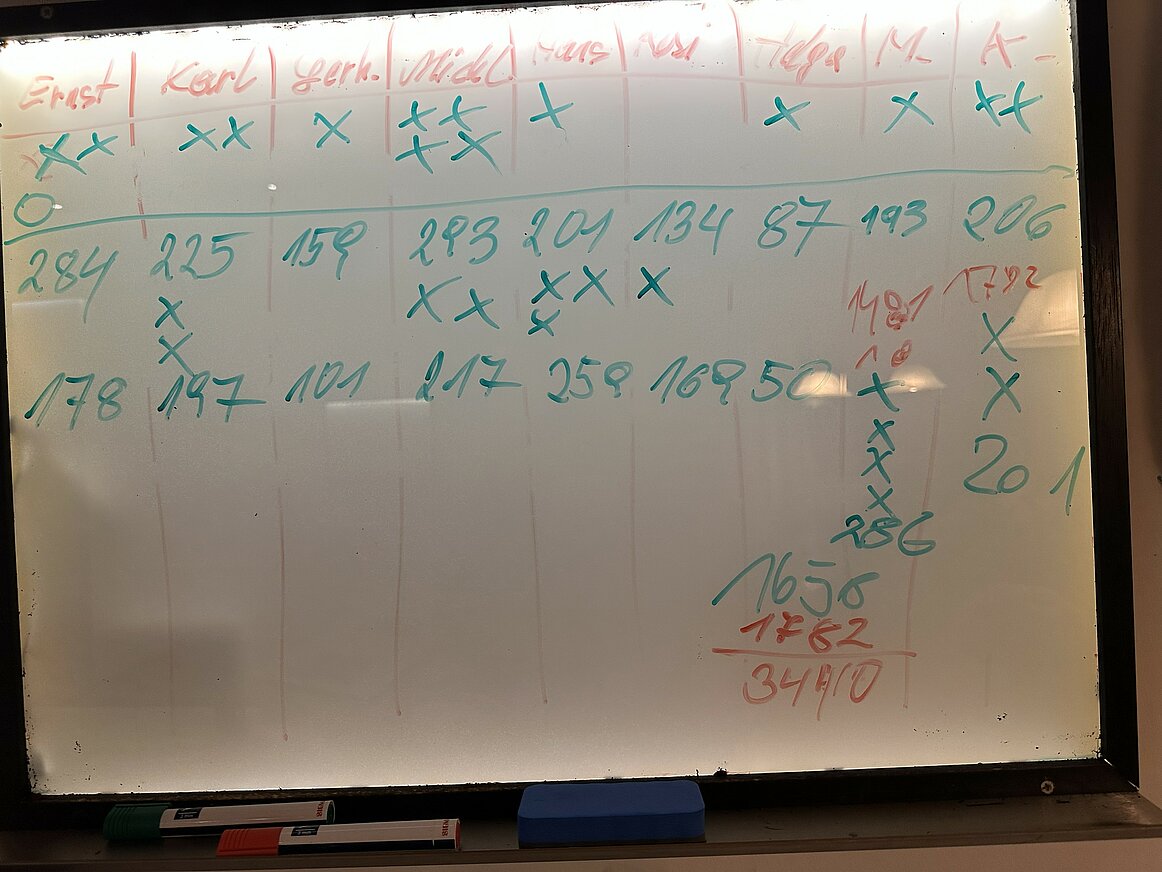 Ernst Karl Gerh. Michl Hans Rosi Helga M. A.
XX XX X XX X X X XX
XX
0
284 225 159 293 201 134 87 193 206
X XX XX X 1481 1792
X X 18 X
178 197 101 217 259 169 50 X X
X
X 201
X
286
1658
1782
3440